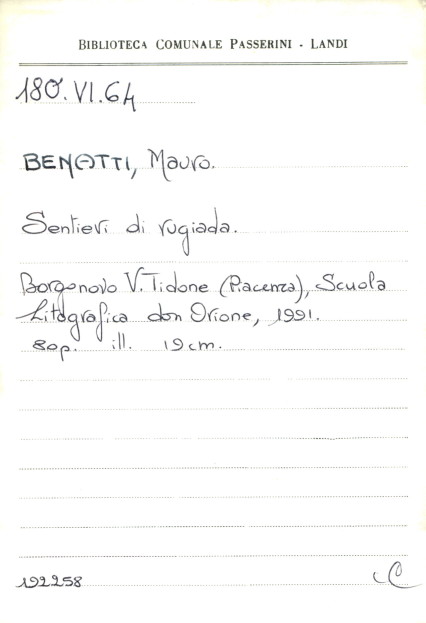 BIBLIOTECA COMUNALE PASSERINI - LANDI
180.VI.64
BENOTTI, Mauro.
Sentieri di rugiada.
Borgonovo V. Tidone (Piacenza), Scuola
Litografica don Orione, 1991.
80p. ill. 19cm.
192258